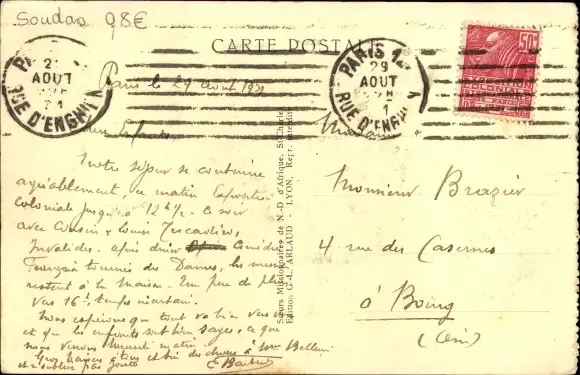 Soudan 98€
CARTE POSTALE
PARIS
29
AOUT
RUE D'ENGHIEN
PARIS
29
AOUT
RUE D'ENGHIEN
50c
EXPOSITION
COLONIALE
Paris le 29 Août 1931
Notre séjour se continue
agréablement, ce matin Exposition
Coloniale jusqu'à 12h½. Ce soir
avec Cousin & Louise
Invalides. Après dîner Comédie
Française tournée des Dames, les
restent à la maison. Un peu de pluie
vers 16h, temps incertain.
Nous espérons que tout va bien
et que les enfants sont bien sages, ce que
nous verrons mardi matin.
Gros baisers à tous et bien des choses à Mme
et n'oublier pas
Sœurs Missionnaires de N.-D. d'Afrique, St-Charles
Edition G.-L. ARLAUD - LYON Repr. interdite
Monsieur Brazier
4 rue des Casernes
à Bourg
(Ain)